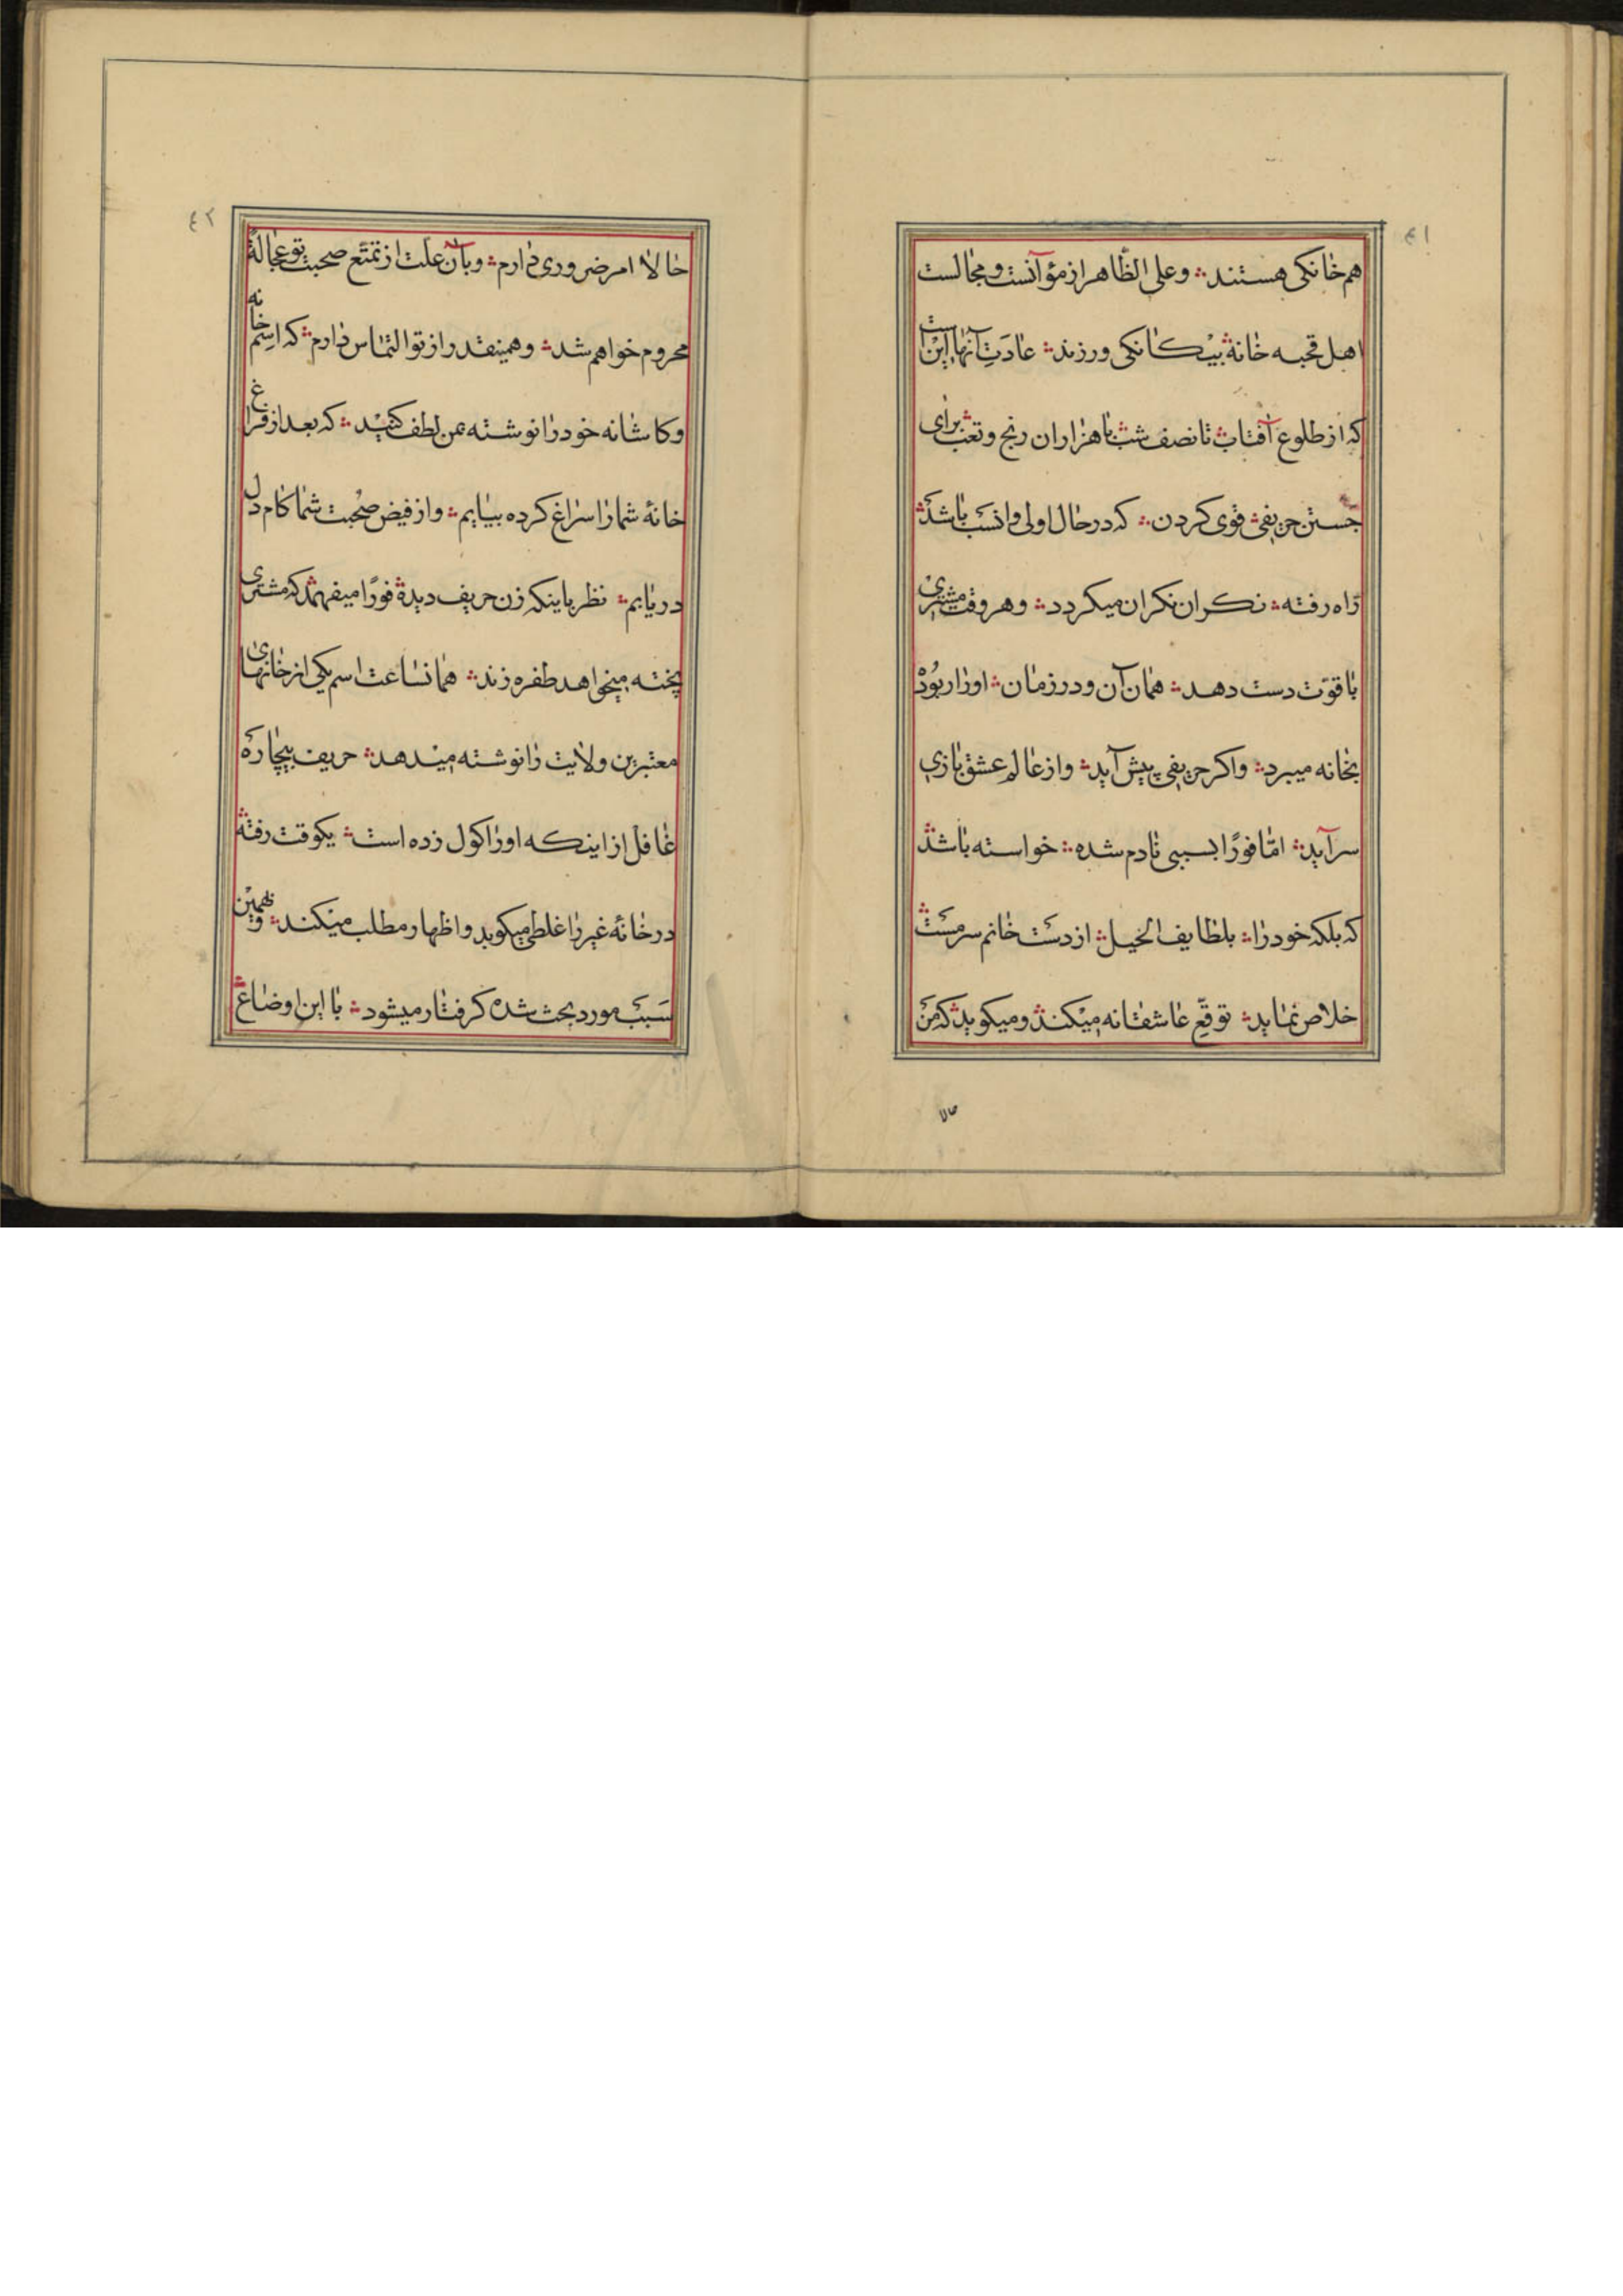 ٤١
هم خانکی هستند ؞ و علی الظّاهر از مؤآنست و مجالست
اهل قحبه خانه ؞ بیکانکی ورزند ؞ عادَتِ آنها این است
که از طلوع آفتاب ؞ تا نصف شب ؞ با هزاران رنج و تعب ؞ برای
جستن حریفی ؞ قوی کردن ؞ که در حال اولی و انسب باشد ؞
راه رفته ؞ نکران نکران میکردد ؞ و هر وقت مشتری
با قوّت دست دهد ؞ همان آن و در زمان ؞ اورا ربُودْ
بخانه میبرد ؞ و اکر حریفی پیش آید ؞ و از عالم عشق بازی
سر آید ؞ امّا فورًا بسببی نادم شده ؞ خواسته باشد ؞
که بلکه خود را ؞ بلطایف الحیل ؞ از دست خانم سرمست ؞
خلاص نماید ؞ توقّعِ عاشقانه میکند ؞ و میکوید ؞ که من
حالا
٤٢
حالا امر ضروری دارم ؞ و بآن علّت از تمتّع صحبت تو عجالةً
محروم خواهم شد ؞ و همینقدر از تو التماس دارم ؞ که اسِم خانه
و کاشانه خود را نوشته بمن لطف کنید ؞ که بعد از فراغ
خانهٔ شما را سراغ کرده بیایم ؞ و از فیض صُحبت شما کام دل
دریابم ؞ نظر باینکه زن حریف دیده ؞ فورًا میفهمد ؞ که مشتری
پخته میخواهد طفره زند ؞ همانساعت اسم یکی از خانهای
معتبرین ولایت را نوشته میدهد ؞ حریف بیچاره
غافل از اینکه اورا کول زده است ؞ یکوقت رفته ؞
در خانهٔ غیر را غلطی میکوبد و اظهار مطلب میکند ؞ و همین
سَبب مورد بحث شده کرفتار میشود ؞ با این اوضاع ؞